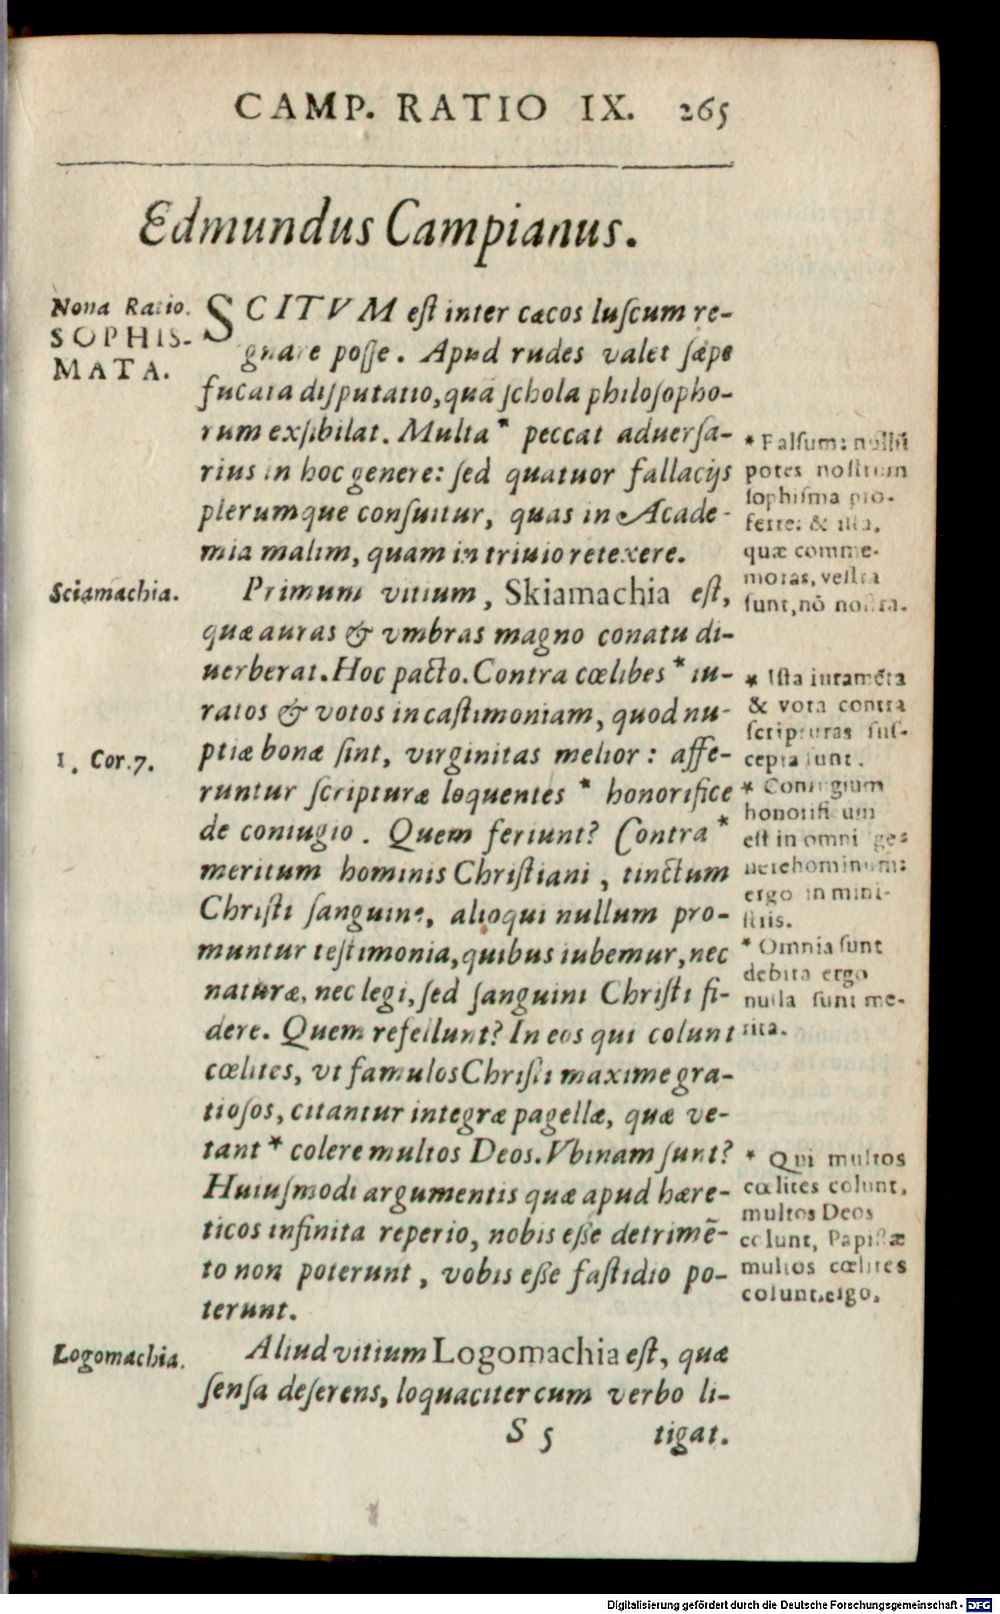 CAMP. RATIO IX. 265
Edmundus Campianus.
Nona Ratio.
SOPHIS-
MATA.
SCITVM est inter cæcos luscum re-
gnare posse. Apud rudes valet sæpe
fucata disputatio, quā schola philosopho-
rum exsibilat. Multa * peccat aduersa-
rius in hoc genere: sed quatuor fallacijs
plerumque consuitur, quas in Acade-
mia malim, quam in triuio retexere.
* Falsum: nullū
potes nostrum
sophisma pro-
ferre: & illa,
quæ comme-
moras, vestra
sunt, nō nostra.
Sciamachia.
Primum vitium, Skiamachia est,
quæ auras & vmbras magno conatu di-
uerberat. Hoc pacto. Contra cœlibes * iu-
ratos & votos in castimoniam, quod nu-
ptiæ bonæ sint, virginitas melior: affe-
runtur scripturæ loquentes * honorifice
de coniugio. Quem feriunt? Contra *
meritum hominis Christiani, tinctum
Christi sanguine, alioqui nullum pro-
muntur testimonia, quibus iubemur, nec
naturæ, nec legi, sed sanguini Christi fi-
dere. Quem refellunt? In eos qui colunt
cœlites, vt famulos Christi maxime gra-
tiosos, citantur integræ pagellæ, quæ ve-
tant * colere multos Deos. Vbinam sunt?
Huiusmodi argumentis quæ apud hære-
ticos infinita reperio, nobis esse detrimē-
to non poterunt, vobis esse fastidio po-
terunt.
1. Cor. 7.
* Ista iuramēta
& vota contra
scripturas sus-
cepta sunt.
* Coniugium
honorificum
est in omni ge-
nere hominum:
ergo in mini-
stris.
* Omnia sunt
debita ergo
nulla sunt me-
rita.
* Qui multos
cœlites colunt,
multos Deos
colunt, Papistæ
multos cœlites
colunt. ergo.
Logomachia.
Aliud vitium Logomachia est, quæ
sensa deserens, loquaciter cum verbo li-
S 5 tigat.
Digitalisierung gefördert durch die Deutsche Forschungsgemeinschaft - DFG